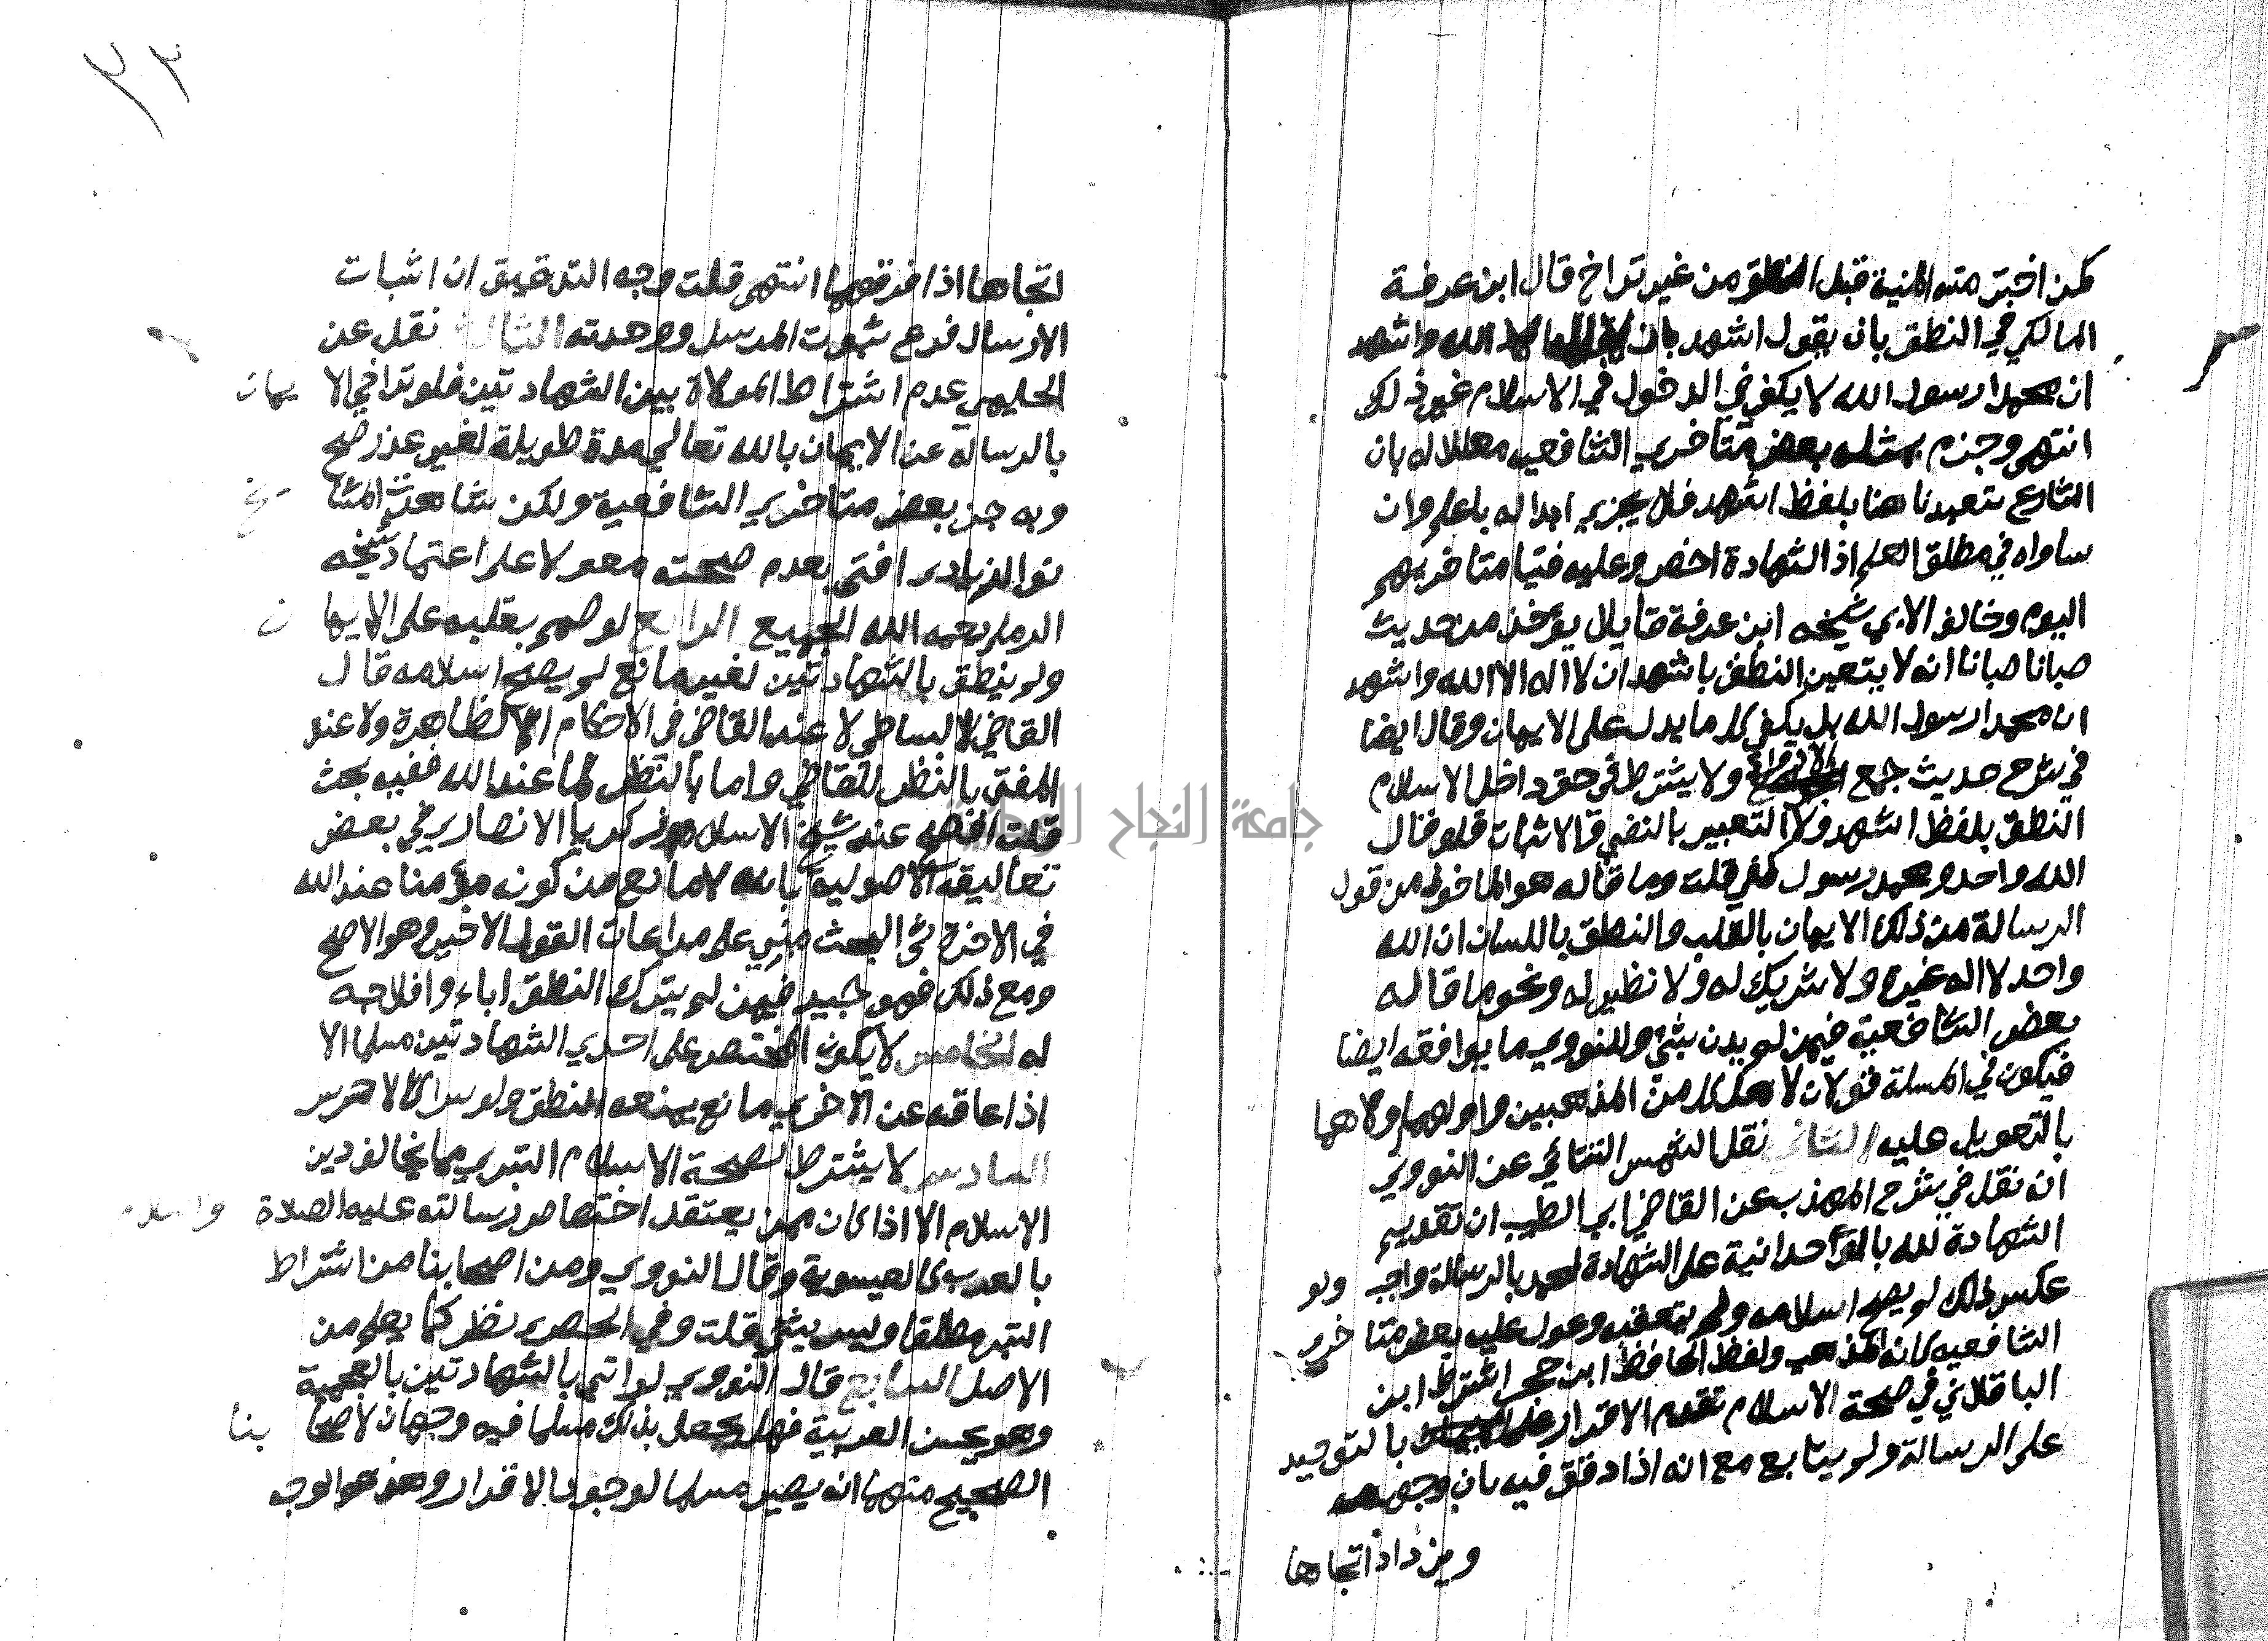 كمن اخترمته المنية قبل النطق من غير تراخ قال ابن عرفة
المالكي في النطق بان يقول اشهد بان لا اله الا الله واشهد
ان محمدا رسول الله لا يكفي في الدخول في الاسلام غير ذلك
انتهى وجزم بمثله بعض متاخري الشافعيه معللا له بان
الشارع تعبدنا هنا بلفظ اشهد فلا يجزي ابداله باعلم وان
ساواه في مطلق العلم اذ الشهادة اخص وعليه فتيا متاخريهم
اليوم وخالف الابي شيخه ابن عرفة قايلا يوخذ من حديث
صبانا صبانا انه لا يتعين النطق باشهد ان لا اله الا الله واشهد
ان محمدا رسول الله بل يكفي كل ما يدل على الايمان وقال ايضا
في شرح حديث جمع الازواد ولا يشترط في حق داخل الاسلام
النطق بلفظ اشهد ولا التعبير بالنفي والاثبات فلو قال
الله واحد ومحمد رسول كفى قلت وما قاله هو الماخوذ من قول
الرسالة من ذلك الايمان بالقلب والنطق باللسان ان الله
واحد لا اله غيره ولا شريك له ولا نظير له ونحو ما قاله
بعض الشافعية فيمن لم يدن بشئ وللنووي ما يوافقه ايضا
فيكون في المسلة قولان لاهل كل من المذهبين واولهما اولاهما
بالتعويل عليه الثاني نقل الشمس التتائي عن النووي
ان نقل في شرح المهذب عن القاضي ابي الطيب ان تقديم
الشهادة لله بالوحدانية على الشهادة لمحمد بالرسالة واجب ولو
عكس ذلك لم يصح اسلامه ولم يتعقبه وعول عليه بعض متاخري
الشافعيه كانه المذهب ولفظ الحافظ ابن حجر اشترط ابن
الباقلاني في صحة الاسلام تقدم الاقرار بالتوحيد
على الرسالة ولم يتابع مع انه اذا دقق فيه بان وجهه
ويزداد اتجاها
٣٣
اتجاها اذا فرقهما انتهى قلت وجه التدقيق ان اثبات
الارسال فرع ثبوت المرسل ووحدته الثالث نقل عن
الحليمي عدم اشتراط الموالاة بين الشهادتين فلو تراخي الايمان
بالرسالة عن الايمان بالله تعالى مدة طويلة لغير عذر صح
وبه جزم بعض متاخري الشافعية ولكن مشايخ
الزيادي افتى بعدم صحته معولا على اعتماد شيخه
الرملي رحمه الله الجميع الرابع لو صمم بقلبه على الايمان
ولم ينطق بالشهادتين لغير مانع لم يصح اسلامه قال
القاضي البساطي لا عند القاضي في الاحكام الظاهرة ولا عند
المفتي بالنظر للقاضي واما بالنظر لما عند الله ففيه بحث
قلت عند شيخ الاسلام زكريا الانصاري في بعض
تعاليقه الاصولية بانه لا مانع من كونه مؤمنا عند الله
في الاخرة البحث مبني على مراعات القول الاخير وهو الاصح
ومع ذلك فهو جيد فيمن لم يترك النطق اباء
له الخامس لا يكون المقتصر على احدي الشهادتين مسلما الا
اذا عاقه عن الاخري مانع يمنعه النطق ولو سرا كالاخرس
السادس لا يشترط لصحة الاسلام التبري مما يخالف دين
الاسلام الا اذا كان ممن يعتقد اختصاص رسالته عليه الصلاة والسلام
بالعرب كالعيسوية وقال النووي ومن اصحابنا من اشتراط
التبر مطلقا وليس بشئ قلت وفي الحصر نظر كما يعلم من
الاصل السابع قال النووي لو اتى بالشهادتين بالعجمية
وهو يحسن العربية فهل يجعل بذلك مسلما فيه وجهان لاصحابنا
الصحيح منهما انه يصير مسلما لوجود الاقرار وهذا هو الوجه
جامعة النجاح الوطنية